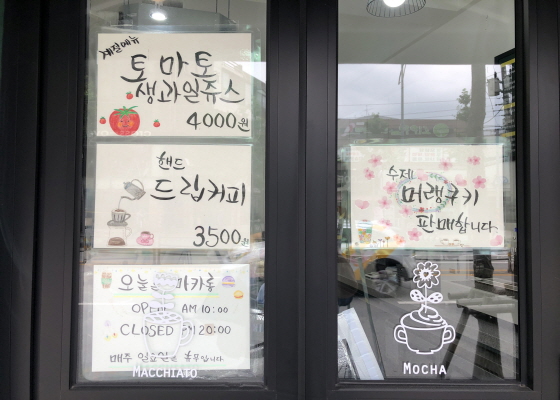 계절메뉴
토마토
생과일쥬스
4000원
핸드
드립커피
3500원
오늘 마카롱
OPEN AM 10:00
CLOSED PM 20:00
매주 일요일은 휴무입니다.
MACCHIATO
수제
머랭쿠키
판매합니다.
MOCHA